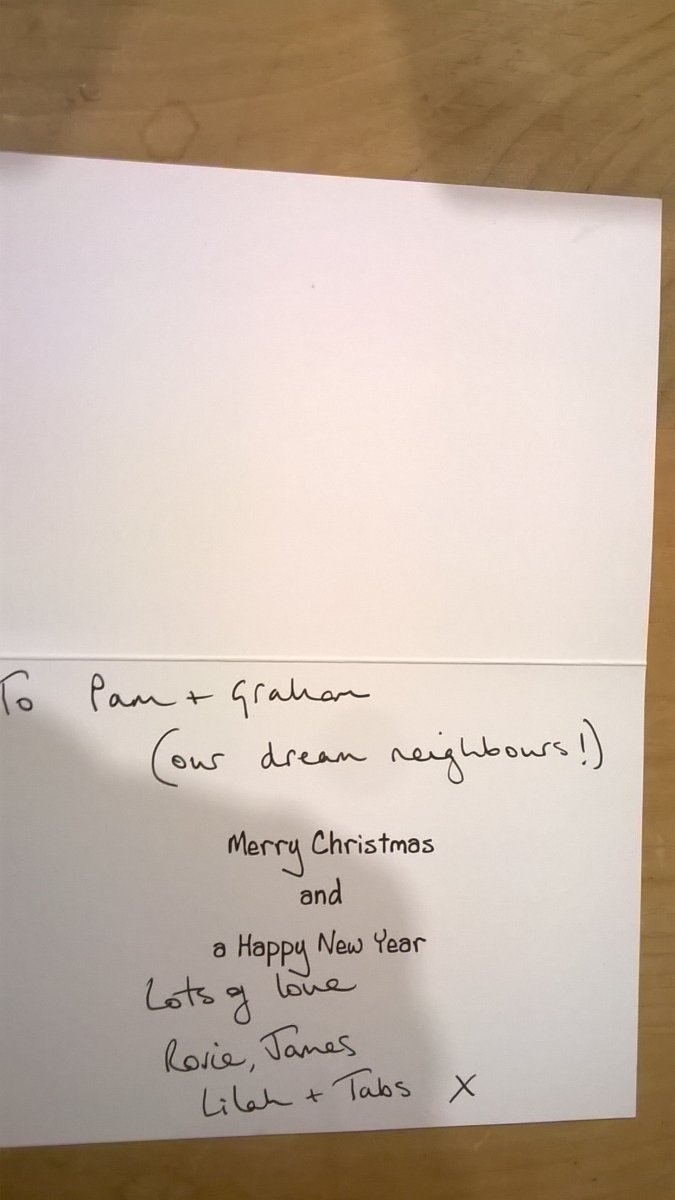 To Pam + Graham
(our dream neighbours!)
Merry Christmas
and
a Happy New Year
Lots of love
Rosie, James
Lilah + Tabs X